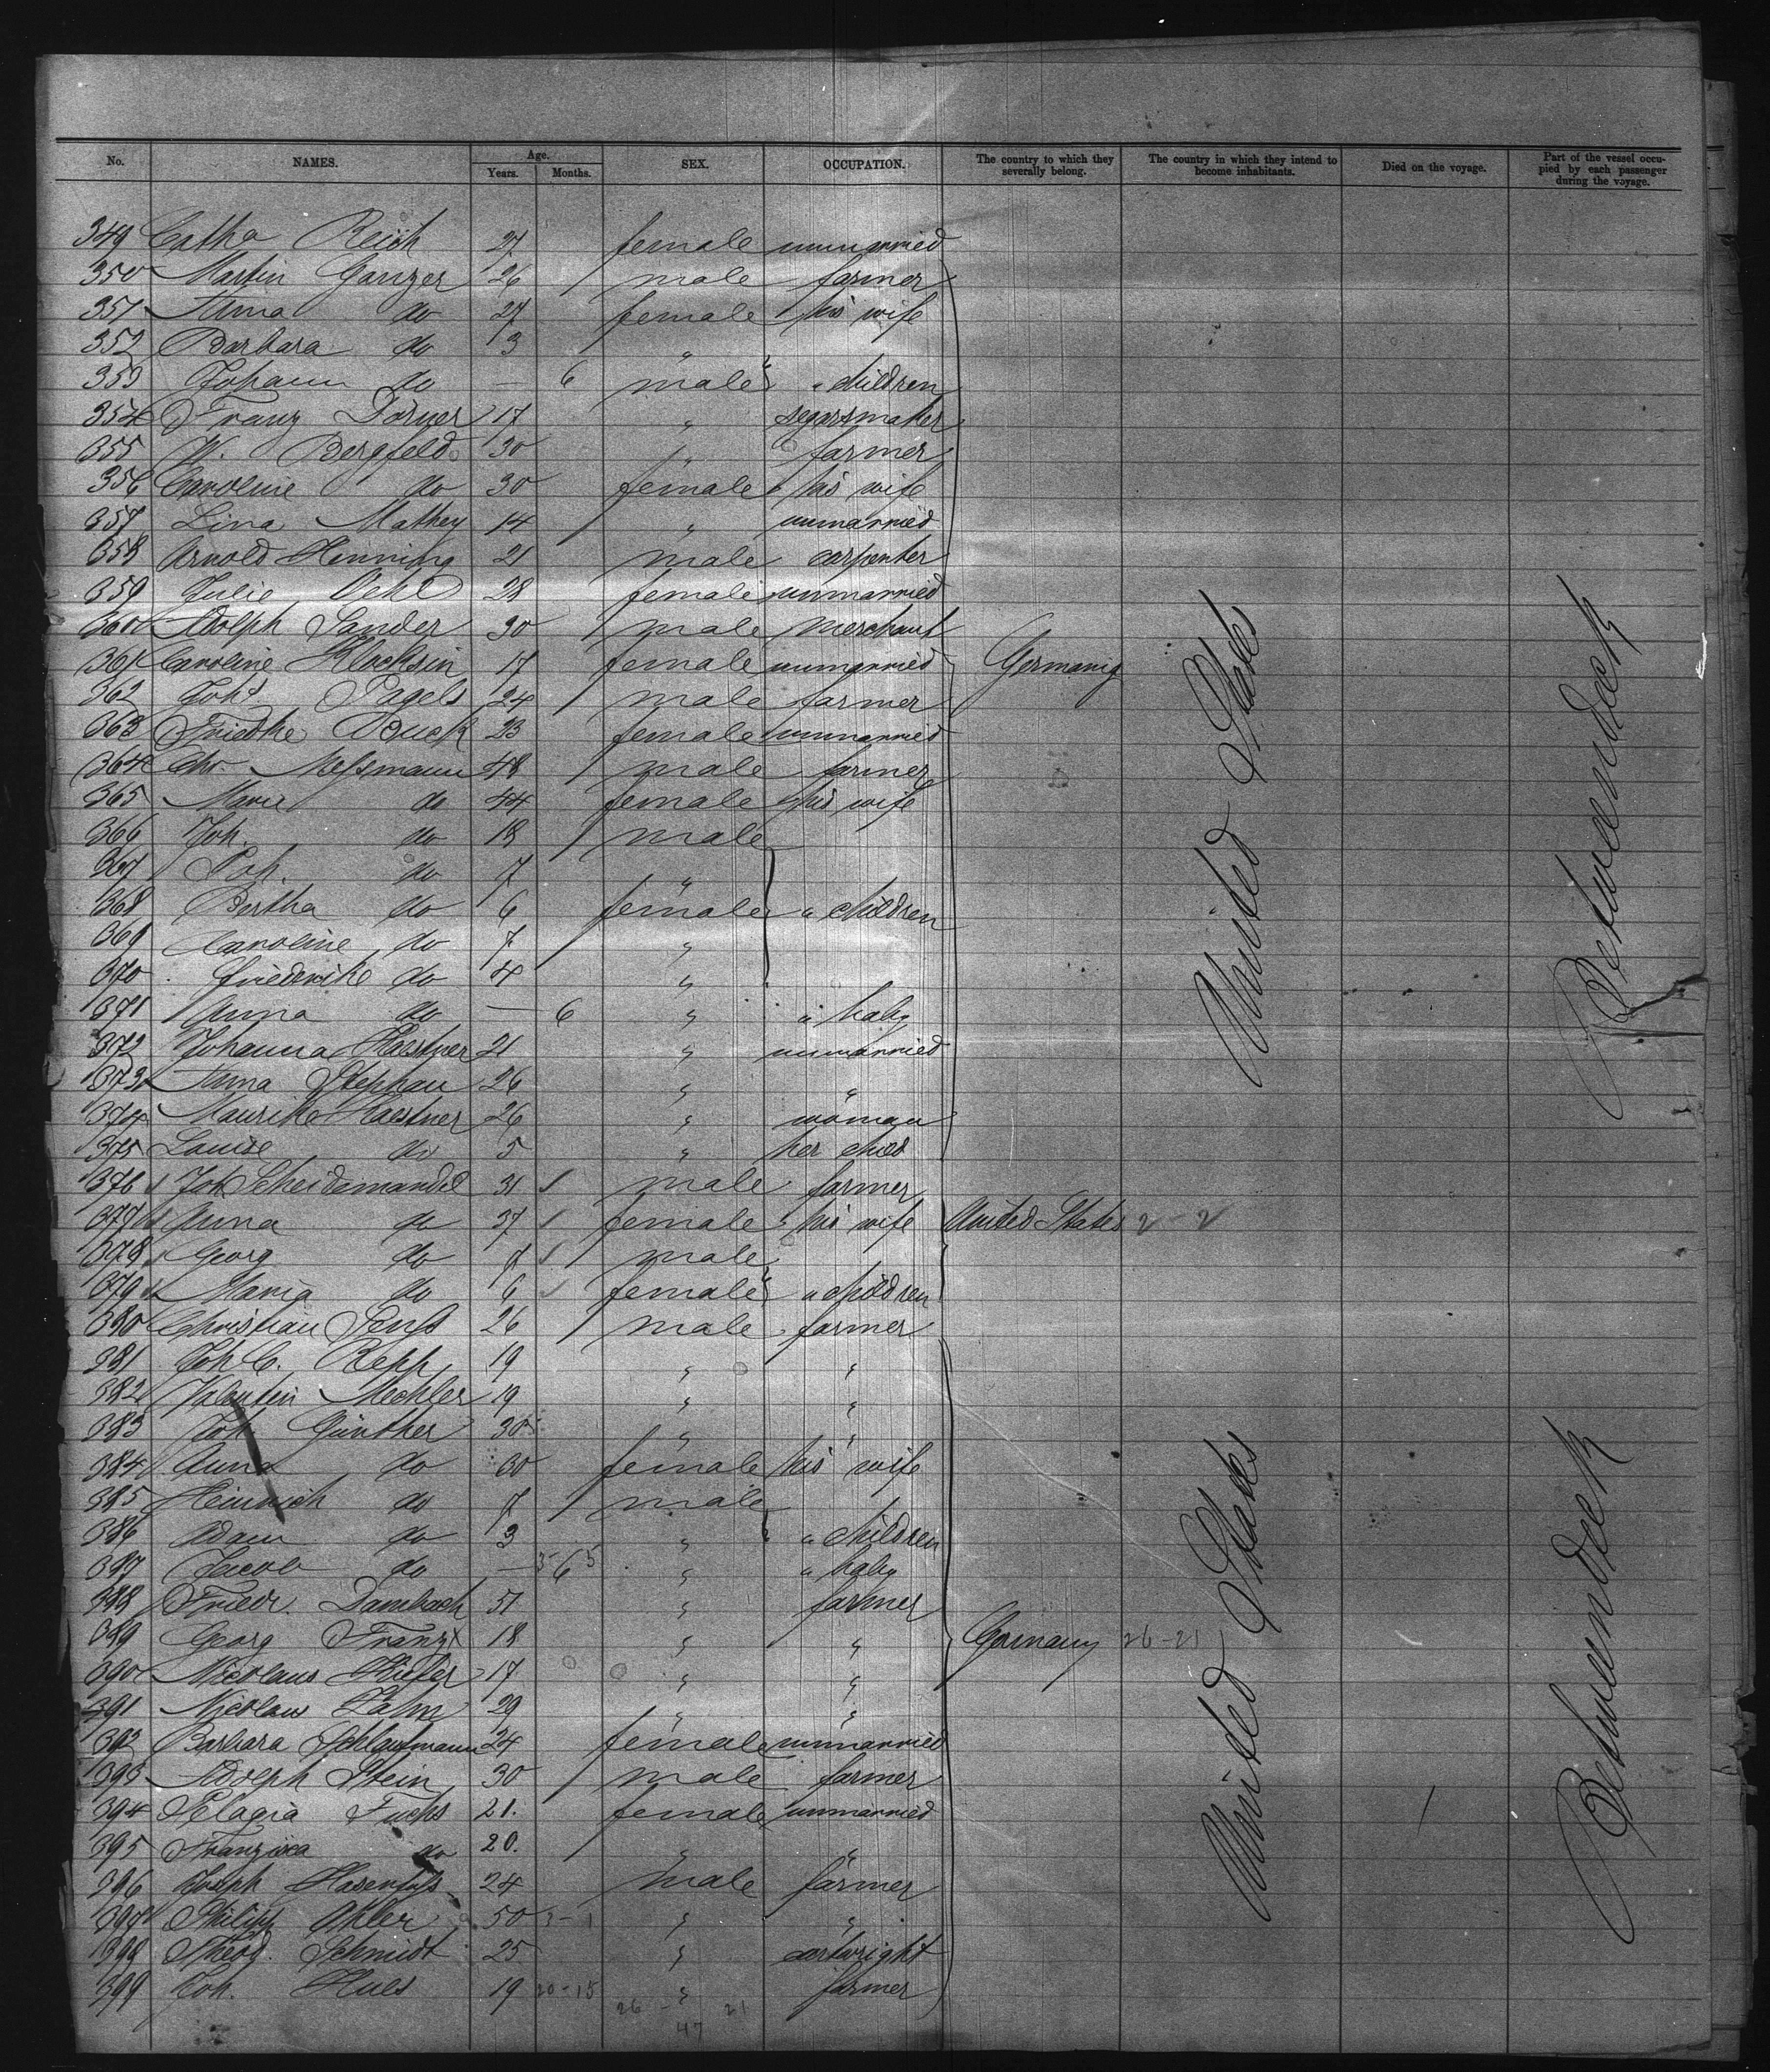 No. NAMES. Age. Years. Months. SEX. OCCUPATION. The country to which they severally belong. The country in which they intend to become inhabitants. Died on the voyage. Part of the vessel occupied by each passenger during the voyage.
349 Catha Reich 27 female unmarried
350 Martin Ganzer 26 male farmer
351 Anna do 27 female his wife
352 Barbara do 3 "
353 Johann do — 6 male " children
354 Franz Dorner 17 " segarsmaker
355 W. Bergfeld 30 " farmer
356 Caroline do 30 female his wife
357 Lina Mathey 14 " unmarried
358 Arnold Henning 21 male carpenter
359 Julie Oehl 28 female unmarried
360 Adolph Sander 30 male merchant
361 Caroline Klocksin 17 female unmarried Germany United States Betweendeck
362 Joh Pagels 24 male farmer
363 Friedke Buck 23 female unmarried
364 Chr. Messmann 48 male farmer
365 Marie do 44 female his wife
366 Joh. do 18 male
367 Joh. do 7 "
368 Bertha do 6 female " children
369 Caroline do 7 "
370 Friederike do 4 "
371 Anna do — 6 " " baby
372 Johanna Kaestner 21 " unmarried
373 Anna Stephan 26 " "
374 Kaestner 26 " woman
375 Louise do 5 " her child
376 Joh Scheidemandel 31 male farmer
377 Anna do 37 female his wife United States 2 - 2
378 Georg do 7 male
379 Maria do 6 female " children
380 Christian 26 male farmer
381 Joh. C. Repp 19 " "
382 Valentin Mechler 19 " "
383 Joh. Günther 30 " "
384 Anna do 30 female his wife
385 Heinrich do 7 male
386 Adam do 3 " " children
387 Jacob do — 6 " " baby
388 Friedr. Dambach 51 " farmer
389 Georg Franz 18 " " Germany 26-21 United States Betweendeck
390 Nicolaus Kiefer 17 " "
391 Nicolaus Zahn 29 " "
392 Barbara Schlaufmann 24 female unmarried
393 Adolph Stein 30 male farmer
394 Pelagia Fuchs 21. female unmarried
395 Franziska do 20. " "
396 Joseph Hasenfuss 24 male farmer
397 Philipp Ohler 50 3-1 " "
398 Theod. Schmidt 25 " cartwright
399 Joh. Hues 19 20-15 " farmer
26 - 21
47